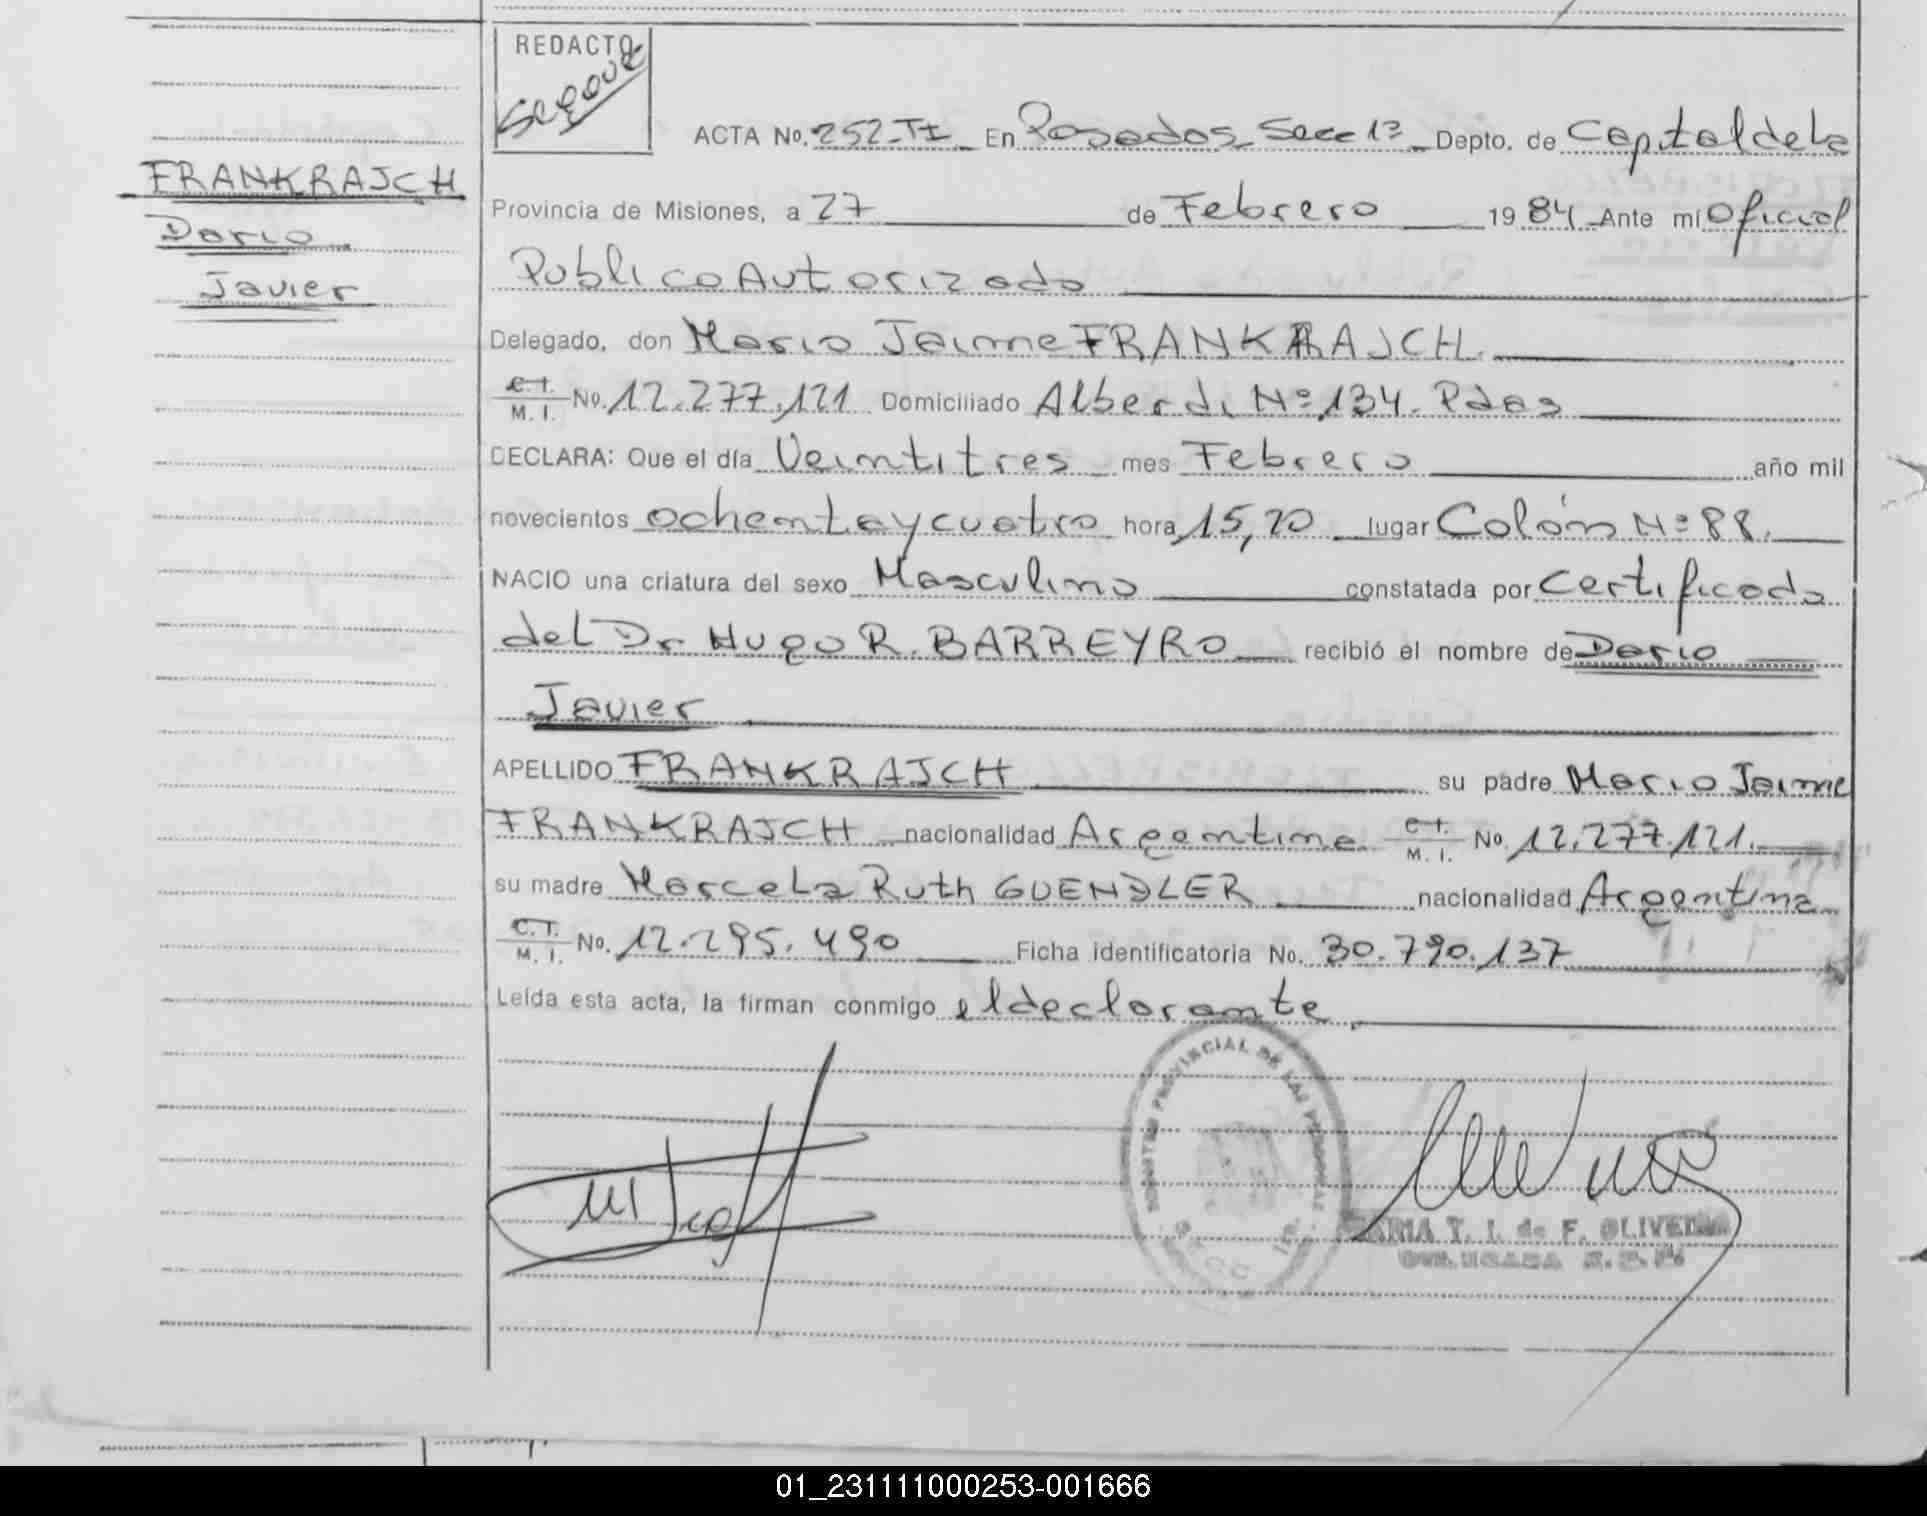 REDACTO
Segove
ACTA No. 252-TI En Posadas Secc 1ª Depto. de Capital de la
FRANKRAJCH
Dario
Javier
Provincia de Misiones, a 27 de Febrero 1984 Ante mí Oficial
Publico Autorizado
Delegado, don Mario Jaime FRANKRAJCH.
C.I. M. I. No. 12.277.121 Domiciliado Alberdi Nº 134. Pdas
DECLARA: Que el día Veintitres mes Febrero año mil
novecientos ochenta y cuatro hora 15,20 lugar Colón Nº 88.
NACIO una criatura del sexo Masculino constatada por Certificado
del Dr Hugo R. BARREYRO recibió el nombre de Dario
Javier
APELLIDO FRANKRAJCH su padre Mario Jaime
FRANKRAJCH nacionalidad Argentina C.I. M. I. No. 12.277.121.
su madre Marcela Ruth GUENDLER nacionalidad Argentina
C.I. M. I. No. 12.295.490 Ficha identificatoria No. 30.790.137
Leída esta acta, la firman conmigo el declarante.
PROVINCIAL DE LAS PERSONAS
SECC 1ª
MARIA T. I. de F. OLIVEIRA
01_231111000253-001666